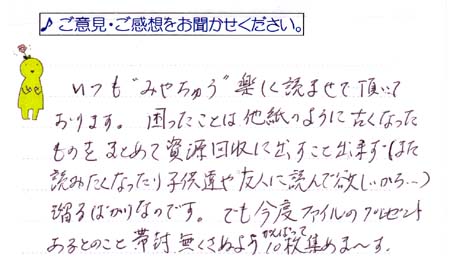 ♪ご意見・ご感想をお聞かせください。
いつも“みやちゅう”楽しく読ませて頂いて
おります。困ったことは他紙のように古くなった
ものをまとめて資源回収に出すこと出来ず(また
読みたくなったり子供達や友人に読んで欲しいから…)
溜るばかりなのです。でも今度ファイルのプレゼント
あるとのこと帯封無くさぬようがんばって10枚集めま〜す。